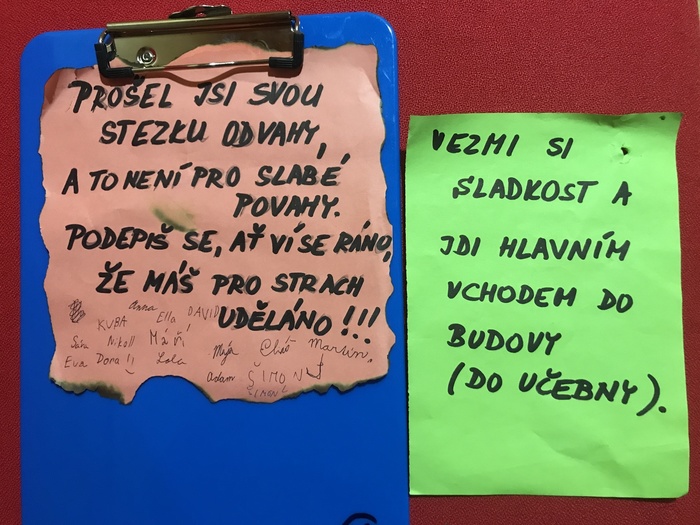 PROŠEL JSI SVOU
STEZKU ODVAHY,
A TO NENÍ PRO SLABÉ
POVAHY.
PODEPIŠ SE, AŤ VÍ SE RÁNO,
ŽE MÁŠ PRO STRACH
UDĚLÁNO!!!
Anna Ella DAVID
KUBA
Sára Nikoll
Mája Martin.
Eva Dora!! Lola
Adam ŠIMON
VEZMI SI
SLADKOST A
JDI HLAVNÍM
VCHODEM DO
BUDOVY
(DO UČEBNY).